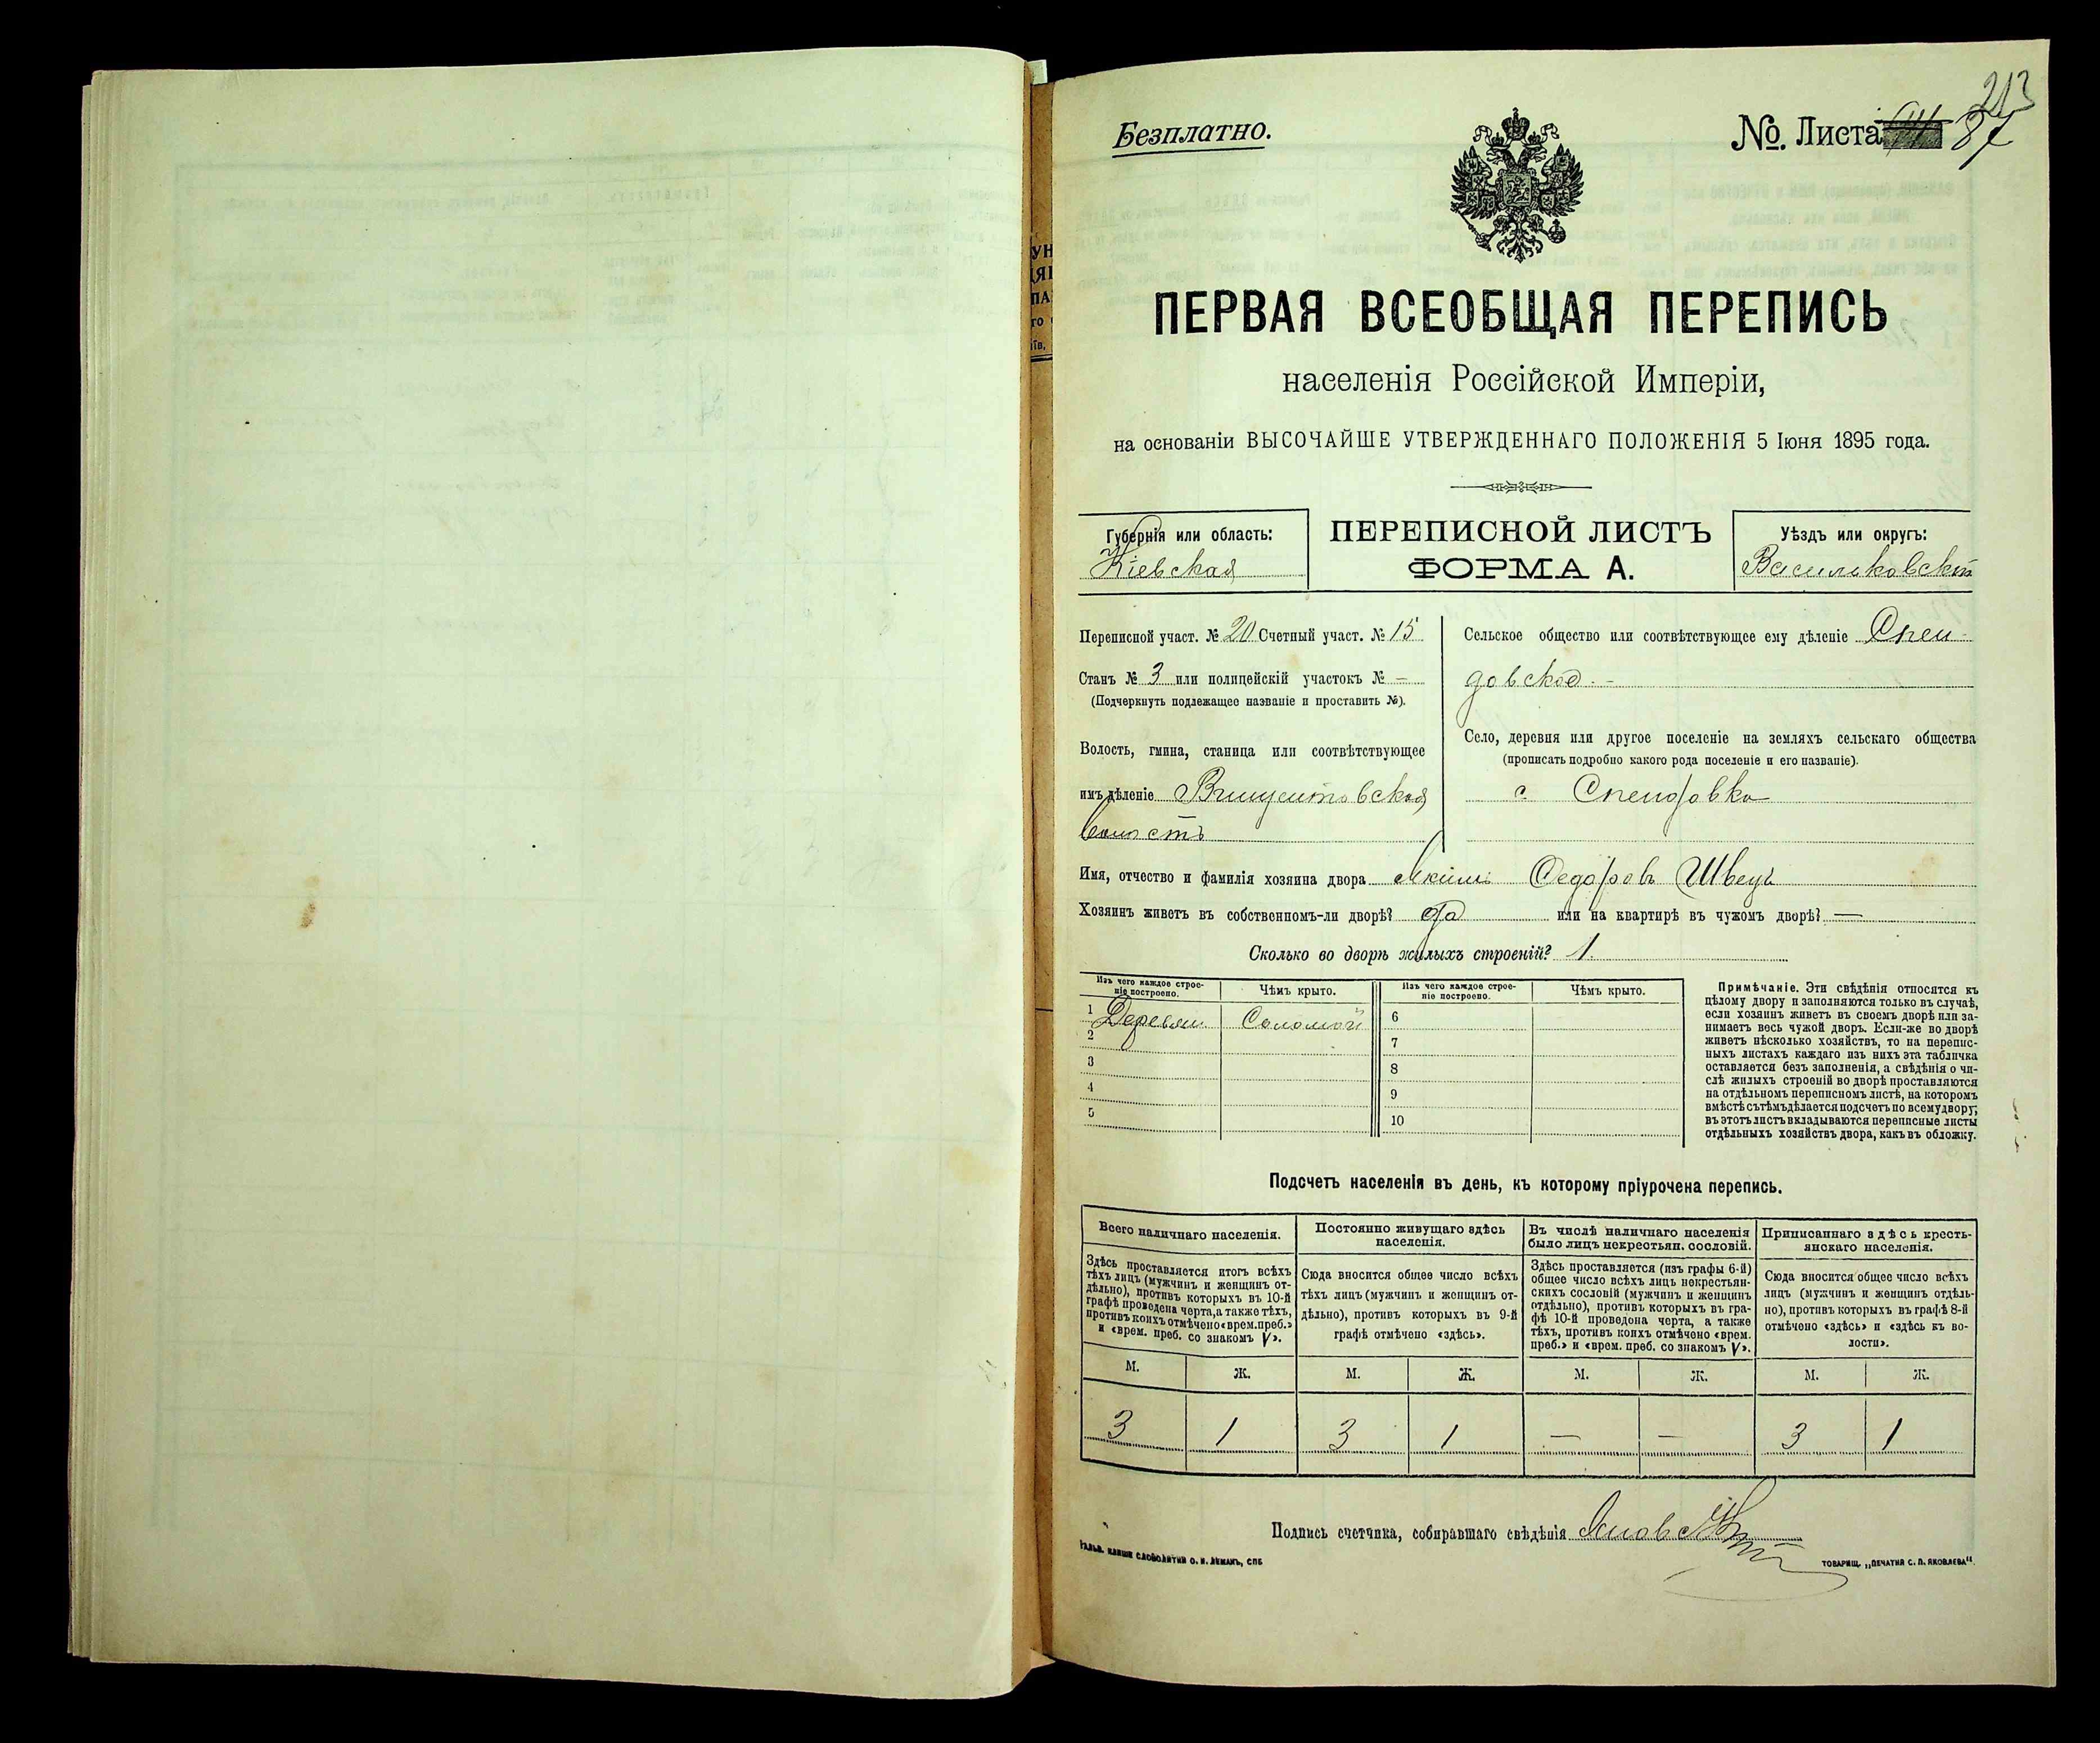 213
Безплатно.
№. Листа 87
ПЕРВАЯ ВСЕОБЩАЯ ПЕРЕПИСЬ
населенія Россійской Имперіи,
на основаніи ВЫСОЧАЙШЕ УТВЕРЖДЕННАГО ПОЛОЖЕНІЯ 5 Іюня 1895 года.
Губернія или область:
Кіевская
ПЕРЕПИСНОЙ ЛИСТЪ
ФОРМА А.
Уѣздъ или округъ:
Васильковскій
Переписной участ. № 20 Счетный участ. № 15
Станъ № 3 или полицейскій участокъ № —
(Подчеркнуть подлежащее названіе и проставить №).
Волость, гмина, станица или соотвѣтствующее
имъ дѣленіе Винцентовская
волость
Сельское общество или соотвѣтствующее ему дѣленіе Спен-
довское
Село, деревня или другое поселеніе на земляхъ сельскаго общества
(прописать подробно какого рода поселеніе и его названіе).
с. Спендовка
Имя, отчество и фамилія хозяина двора Якимъ Федоровъ Швецъ
Хозяинъ живетъ въ собственномъ-ли дворѣ? Да или на квартирѣ въ чужомъ дворѣ? —
Сколько во дворѣ жилыхъ строеній? 1.
Изъ чего каждое строе-
ніе построено.
Чѣмъ крыто.
Изъ чего каждое строе-
ніе построено.
Чѣмъ крыто.
1 Деревян Соломой
2
3
4
5
6
7
8
9
10
Примѣчаніе. Эти свѣдѣнія относятся къ
цѣлому двору и заполняются только въ случаѣ,
если хозяинъ живетъ въ своемъ дворѣ или за-
нимаетъ весь чужой дворъ. Если-же во дворѣ
живетъ нѣсколько хозяйствъ, то на перепис-
ныхъ листахъ каждаго изъ нихъ эта табличка
оставляется безъ заполненія, а свѣдѣнія о чи-
слѣ жилыхъ строеній во дворѣ проставляются
на отдѣльномъ переписномъ листѣ, на которомъ
вмѣстѣ съ тѣмъ дѣлается подсчетъ по всему двору;
въ этотъ листъ вкладываются переписные листы
отдѣльныхъ хозяйствъ двора, какъ въ обложку.
Подсчетъ населенія въ день, къ которому пріурочена перепись.
Всего наличнаго населенія.
Здѣсь проставляется итогъ всѣхъ
тѣхъ лицъ (мужчинъ и женщинъ от-
дѣльно), противъ которыхъ въ 10-й
графѣ проведена черта, а также тѣхъ,
противъ коихъ отмѣчено «врем. преб.»
и «врем. преб. со знакомъ V».
Постоянно живущаго здѣсь
населенія.
Сюда вносится общее число всѣхъ
тѣхъ лицъ (мужчинъ и женщинъ от-
дѣльно), противъ которыхъ въ 9-й
графѣ отмѣчено «здѣсь».
Въ числѣ наличнаго населенія
было лицъ некрестьян. сословій.
Здѣсь проставляется (изъ графы 6-й)
общее число всѣхъ лицъ некрестьян-
скихъ сословій (мужчинъ и женщинъ
отдѣльно), противъ которыхъ въ гра-
фѣ 10-й проведена черта, а также
тѣхъ, противъ коихъ отмѣчено «врем.
преб.» и «врем. преб. со знакомъ V».
Приписаннаго здѣсь кресть-
янскаго населенія.
Сюда вносится общее число всѣхъ
лицъ (мужчинъ и женщинъ отдѣль-
но), противъ которыхъ въ графѣ 8-й
отмѣчено «здѣсь» и «здѣсь къ во-
лости».
М. Ж. М. Ж. М. Ж. М. Ж.
3 1 3 1 — — 3 1
Подпись счетчика, собиравшаго свѣдѣнія
ГАЛЬВ. КЛИШЕ СЛОВОЛИТНИ О. И. ЛЕМАНЪ, СПБ
ТОВАРИЩ. „ПЕЧАТНЯ С. П. ЯКОВЛЕВА“.